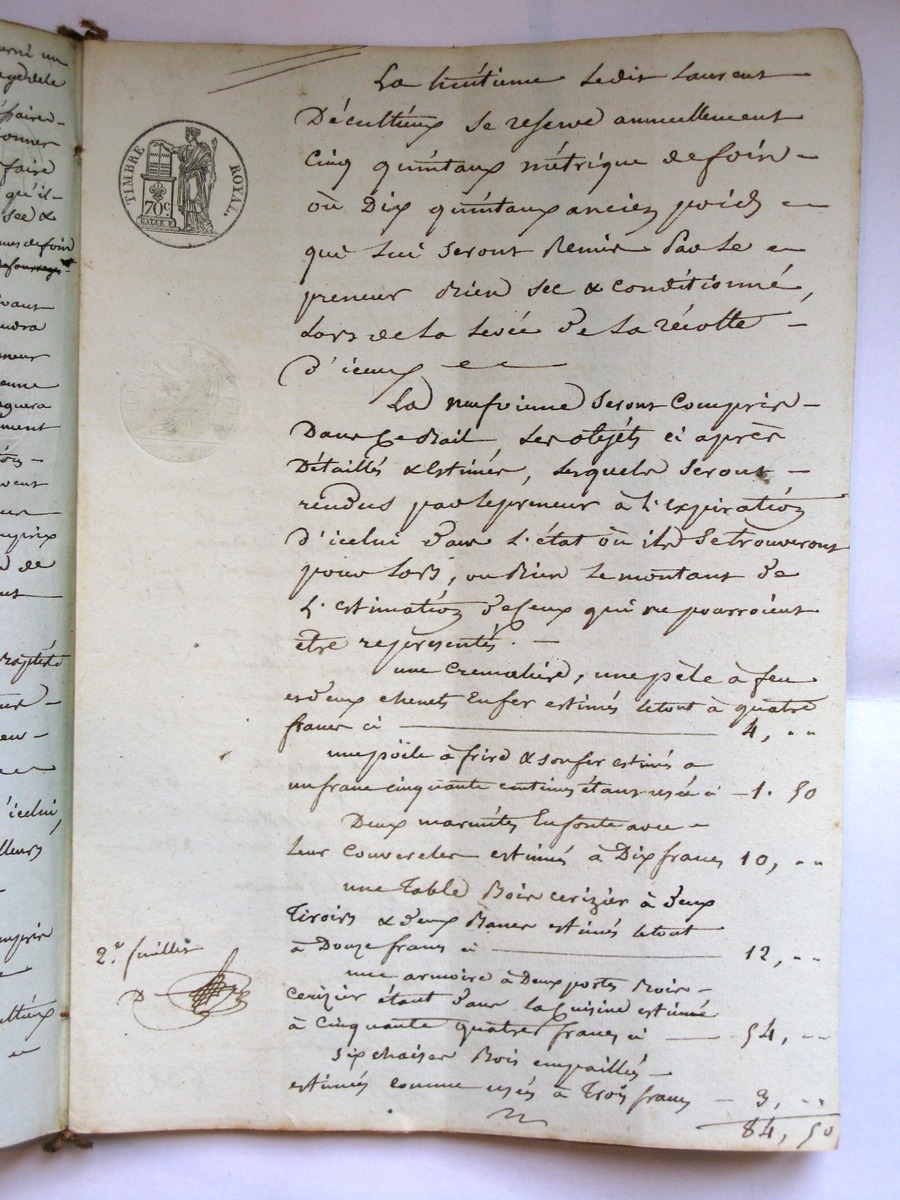 TIMBRE ROYAL
70c
La huitieme Ledit Laurent
Décultieux se reserve annuellement
Cinq quintaux métrique de foin
où Dix quintaux ancien poids
qui Lui seront Remis Par Le
preneur Bien sec & conditionné,
Lors de La Levée de La récolte
d'iceux
La neufvieme seront Compris
Dans Ce Bail Les objéts ci après
Détaillés & Estimés, Lesquels seront
rendus par le preneur à L'expiration
d'icelui dans L'état où ils se trouveront
pour Lors, ou Bien Le montant de
L'estimation de ceux qui ne pourroient
être representés.
une Cremaliere, une pèle à feu
et deux chenets En fer estimés le tout à quatre
francs ci 4, "
une pöile à frire & son fer estimés a
un franc cinquante centimes étant usée ci 1. 50
Deux marmites En fonte avec
Leur Couvercles estimés à Dix francs 10, "
une Table Bois cerizier à deux
Tiroirs & deux Bancs estimés le tout
à Douze francs ci 12, "
une armoire à Deux portes Bois
cerizier étant dans la Cuisine estimée
à Cinquante quatre francs ci 54, "
six chaises Bois empaillés
estimés comme usés à Trois francs 3, "
84, 50
2e. fuillet
D